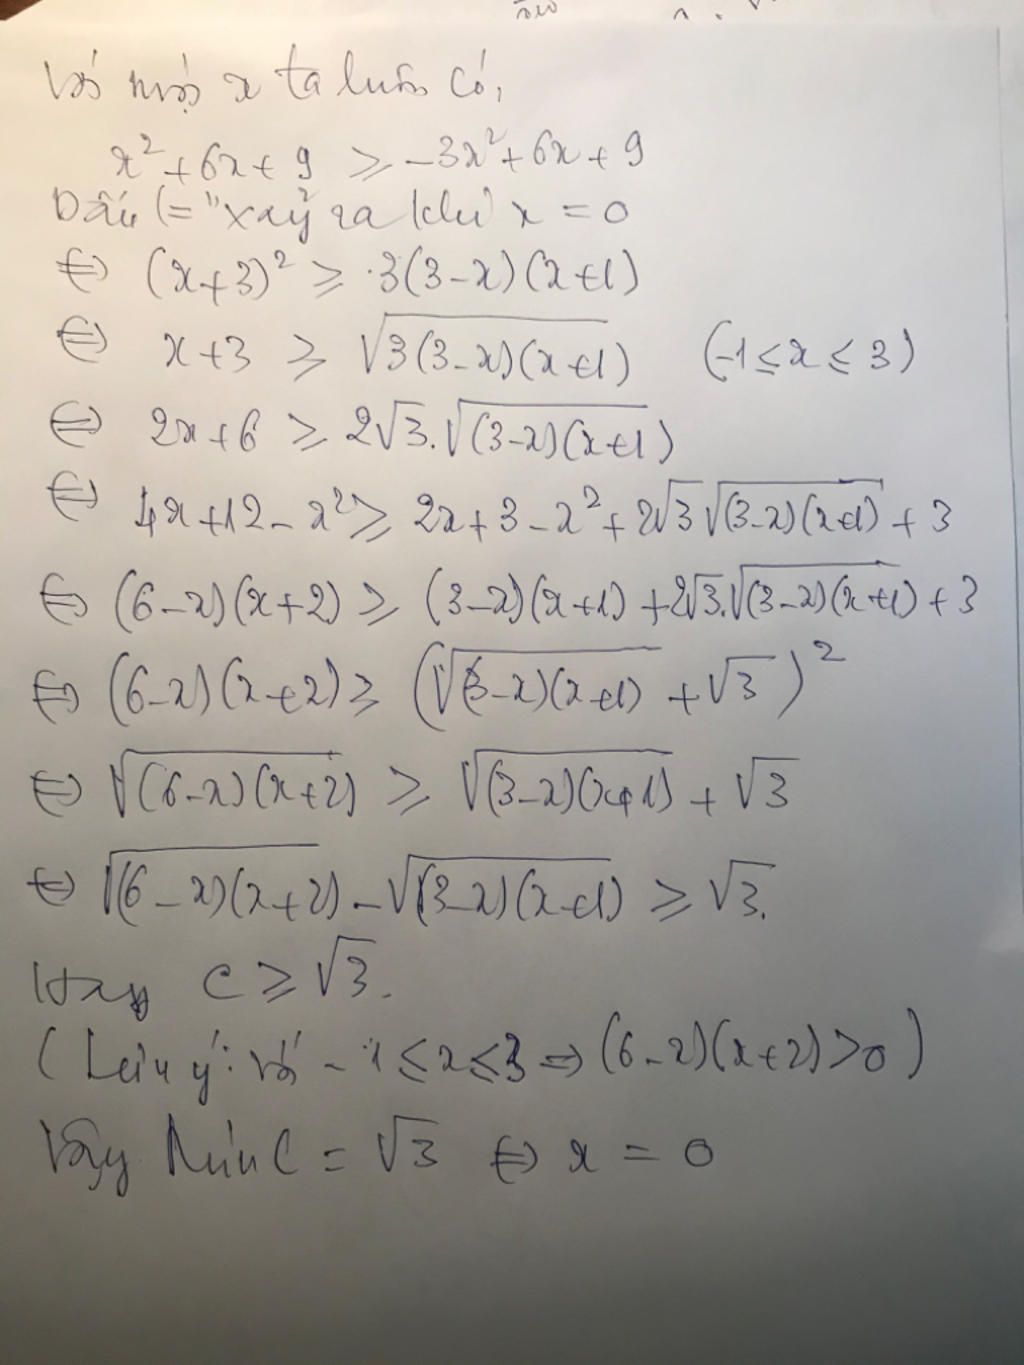 Với mọi x ta luôn có,
x² + 6x + 9 ≥ -3x² + 6x + 9
Dấu "=" xảy ra khi x = 0
⇔ (x+3)² ≥ 3(3-x)(x+1)
⇔ x+3 ≥ √(3(3-x)(x+1)) (-1 ≤ x ≤ 3)
⇔ 2x+6 ≥ 2√3.√((3-x)(x+1))
⇔ 4x+12-x² ≥ 2x+3-x²+2√3√((3-x)(x+1))+3
⇔ (6-x)(x+2) ≥ (3-x)(x+1)+2√3.√((3-x)(x+1))+3
⇔ (6-x)(x+2) ≥ (√((3-x)(x+1))+√3)²
⇔ √((6-x)(x+2)) ≥ √((3-x)(x+1)) + √3
⇔ √((6-x)(x+2)) - √((3-x)(x+1)) ≥ √3.
Hay C ≥ √3.
(Lưu ý: với -1 ≤ x ≤ 3 ⇒ (6-x)(x+2) > 0)
Vậy Min C = √3 ⇔ x = 0